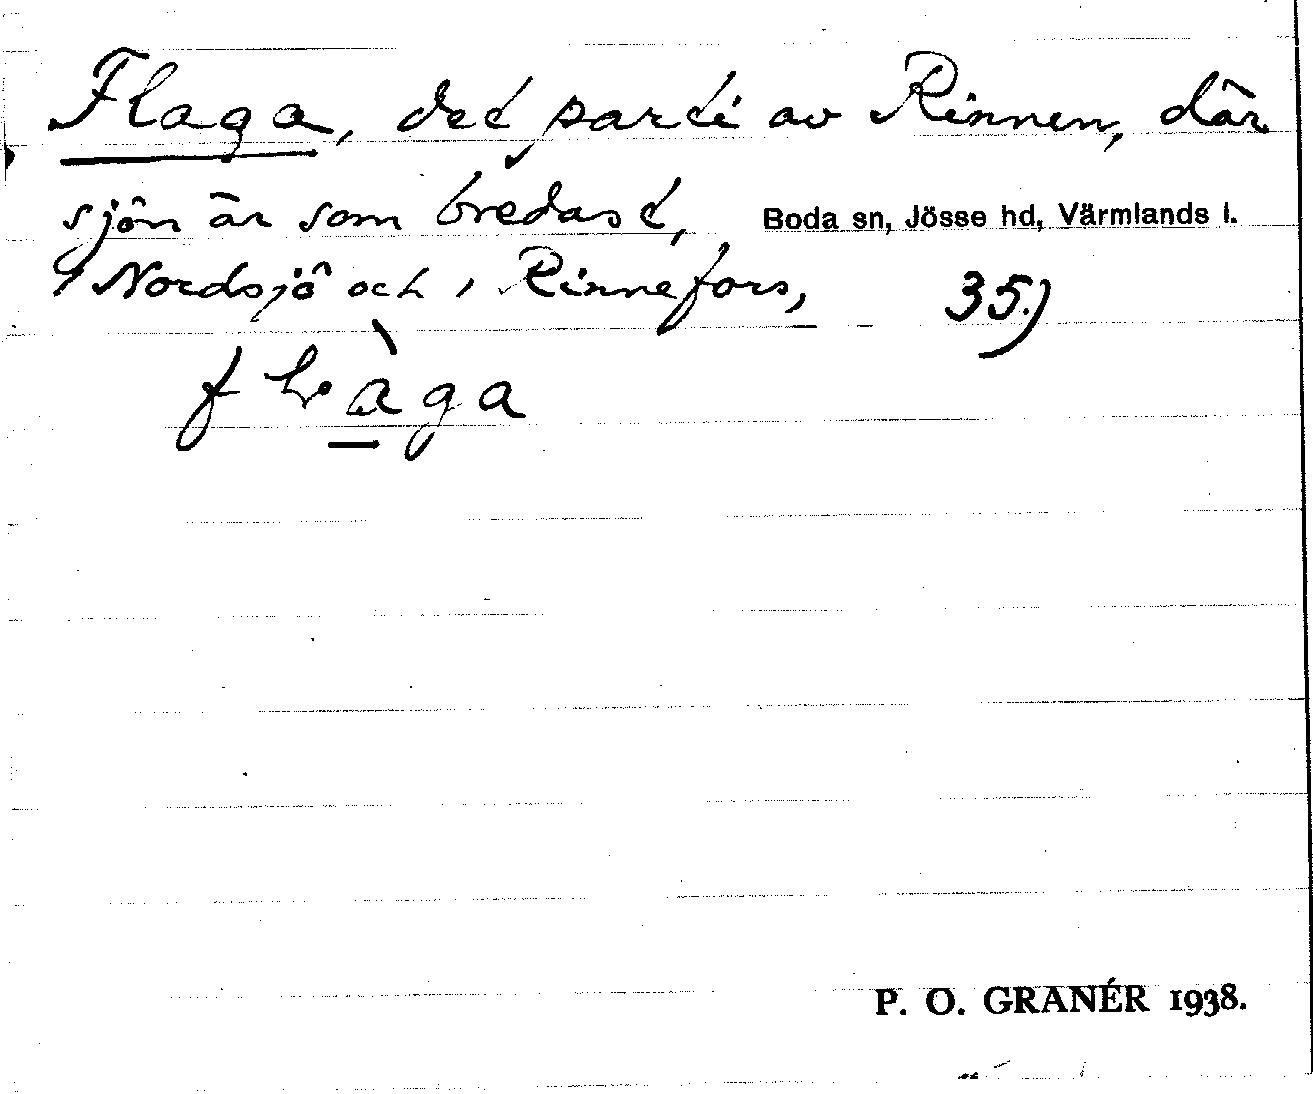 Flaga, det parti av Rinnen, där
sjön är som bredast,
Boda sn, Jösse hd, Värmlands l.
i Nordsjö och i Rinnefors,
35.)
flàga
P. O. GRANÉR 1938.